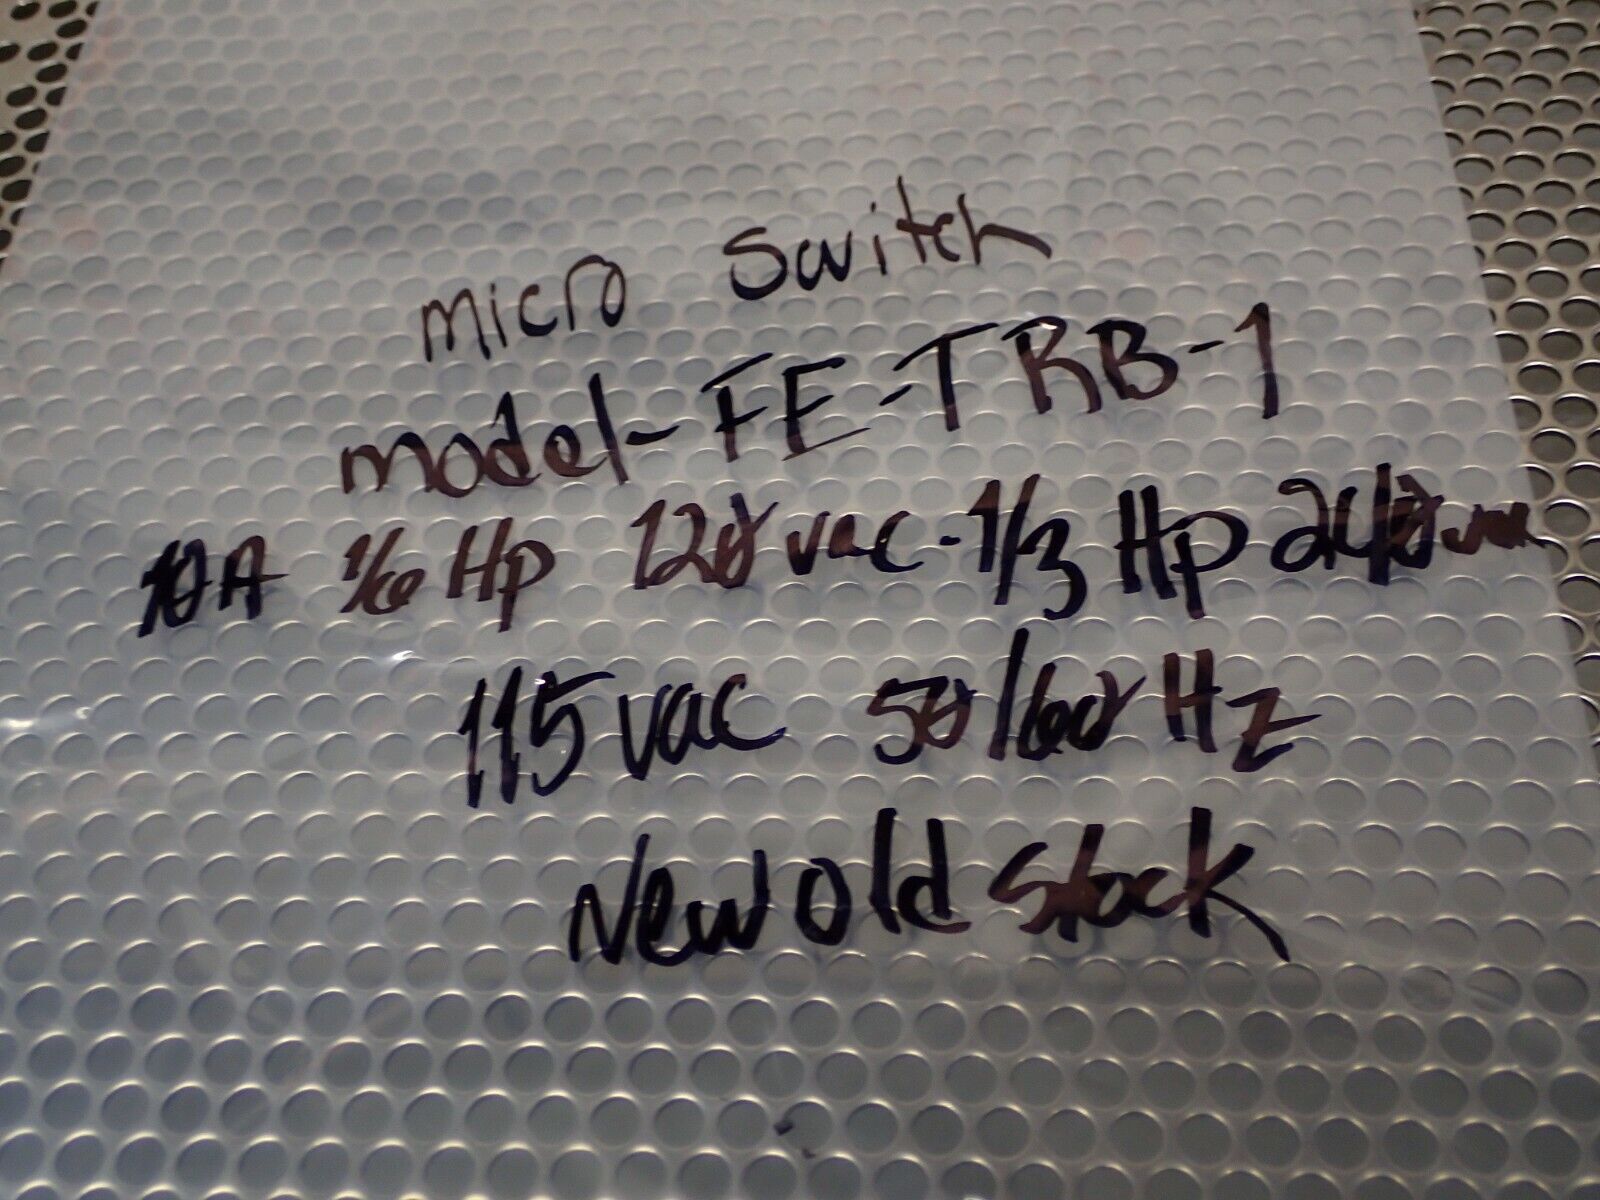 micro switch
model-FE-TRB-1
10A 1/6 Hp 120 vac-1/3 Hp 240 vac
115 vac 50/60 Hz
New old stock